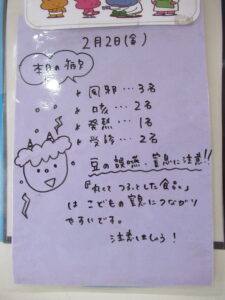 2月2日(金)
本日の病欠
風邪…3名
咳…2名
発熱…1名
受診…2名
豆の誤嚥、窒息に注意!!
「丸くてつるっとした食品」
は こどもの窒息につながり
やすいです。
注意しましょう!